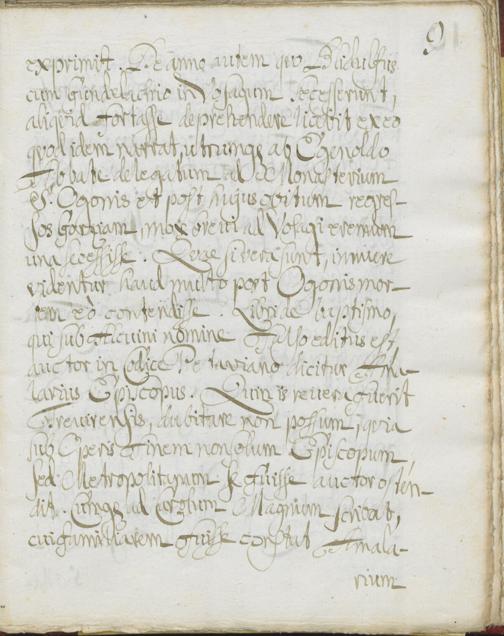 9
exprimit. De anno autem quo Bidulfus
cum Gundelachrio in Vosagum secesserunt,
aliquid fortasse deprehendere licebit ex eo
quod idem narrat, utrumque ab Egenoldo
Abbate delegatum ad Monasterium
S. Ogonis et post hujus obitum regres-
sos Gorziam, mox brevi ad Vosagi eremum
una secessisse. Quae si vera sunt, innuere
videntur haud multo post Ogonis mor-
tem eo contendisse. Libri de baptismo,
qui sub Alcuini nomine falso editus est
auctor in Codice Petaviano dicitur Ama-
larius Episcopus. Quin is revera fuerit
Trevirensis, dubitare non possum, quia
sub Operis finem non solum Episcopum
sed Metropolitanum se fuisse auctor osten-
dit. Cumque ad Carolum Magnum scribat,
cui familiarem fuisse constat Amala-
rium